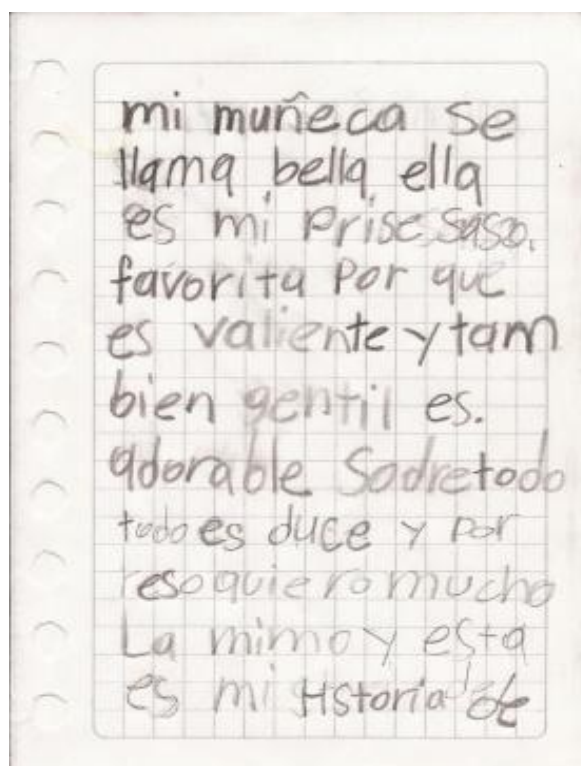 mi muñeca se
llama bella ella
es mi Prise sasa.
favorita Por que
es valiente y tam
bien gentil es.
adorable Sodretodo
todo es duce y por
eso quiero mucho
La mimo y esta
es mi Hstoria de